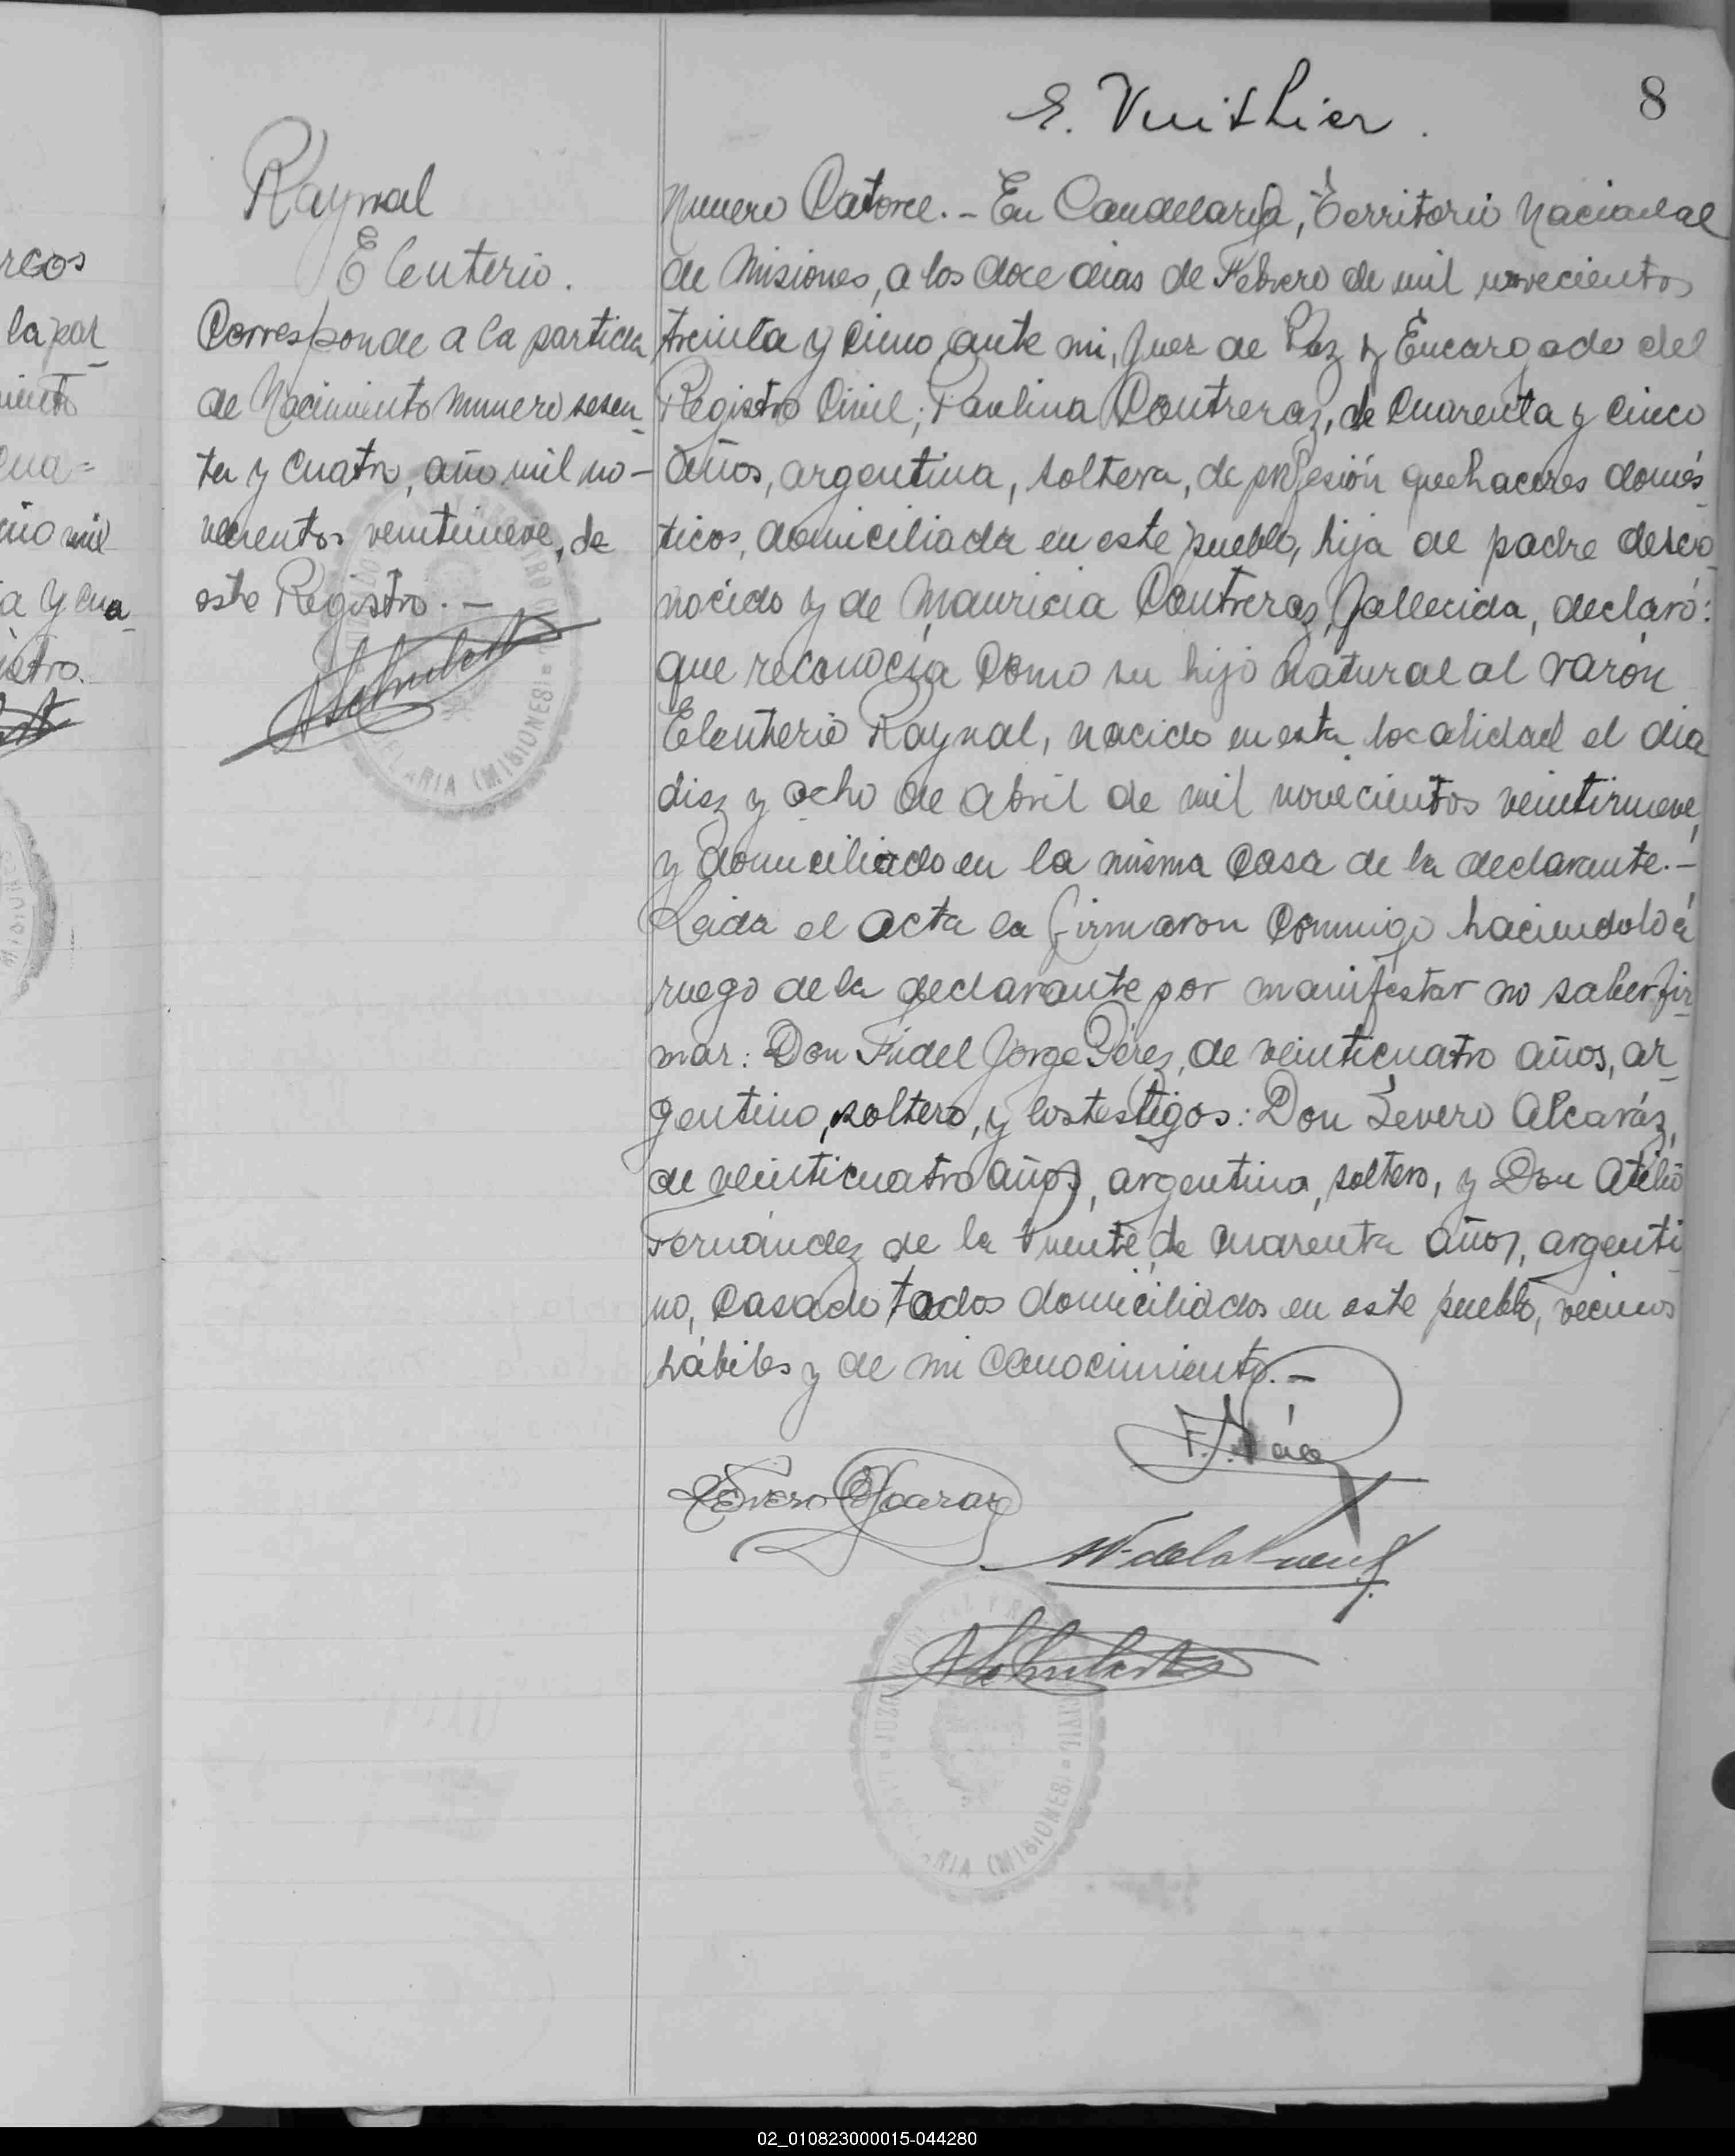 8
E. Vuithier.
Raynal
Eleuterio.
Corresponde a la partida
de Nacimiento numero sesen-
ta y cuatro, año mil no-
vecientos veintinueve, de
este Registro.-
Numero Catorce.- En Candelaria, Territorio Nacional
de Misiones, a los doce dias de Febrero de mil novecientos
treinta y cinco, ante mi, Juez de Paz y Encargado del
Registro Civil; Paulina Contreras, de cuarenta y cinco
años, argentina, soltera, de profesión quehaceres domés-
ticos, domiciliada en este pueblo, hija de padre desco-
nocido y de Mauricia Contreras, fallecida, declaró:
que reconocía como su hijo natural al varón
Eleuterio Raynal, nacido en esta localidad el dia
diez y ocho de abril de mil novecientos veintinueve,
y domiciliado en la misma casa de la declarante.-
Leida el acta la firmaron conmigo haciendolo á
ruego de la declarante por manifestar no saber fir-
mar: Don Fidel Jorge Pérez, de veinticuatro años, ar-
gentino, soltero, y los testigos: Don Severo Alcaráz,
de veinticuatro años, argentino, soltero, y Don Atilio
Fernández de la Puente, de cuarenta años, argenti-
no, casado, todos domiciliados en este pueblo, vecinos
hábiles y de mi conocimiento.-
Severo Alcaraz
de la Puente
rcos
la par-
miento
cua=
no mil
a y cua-
istro.
ELARIA (MISIONES)
JUZGADO
ARIA (MISIONES)
02_010823000015-044280